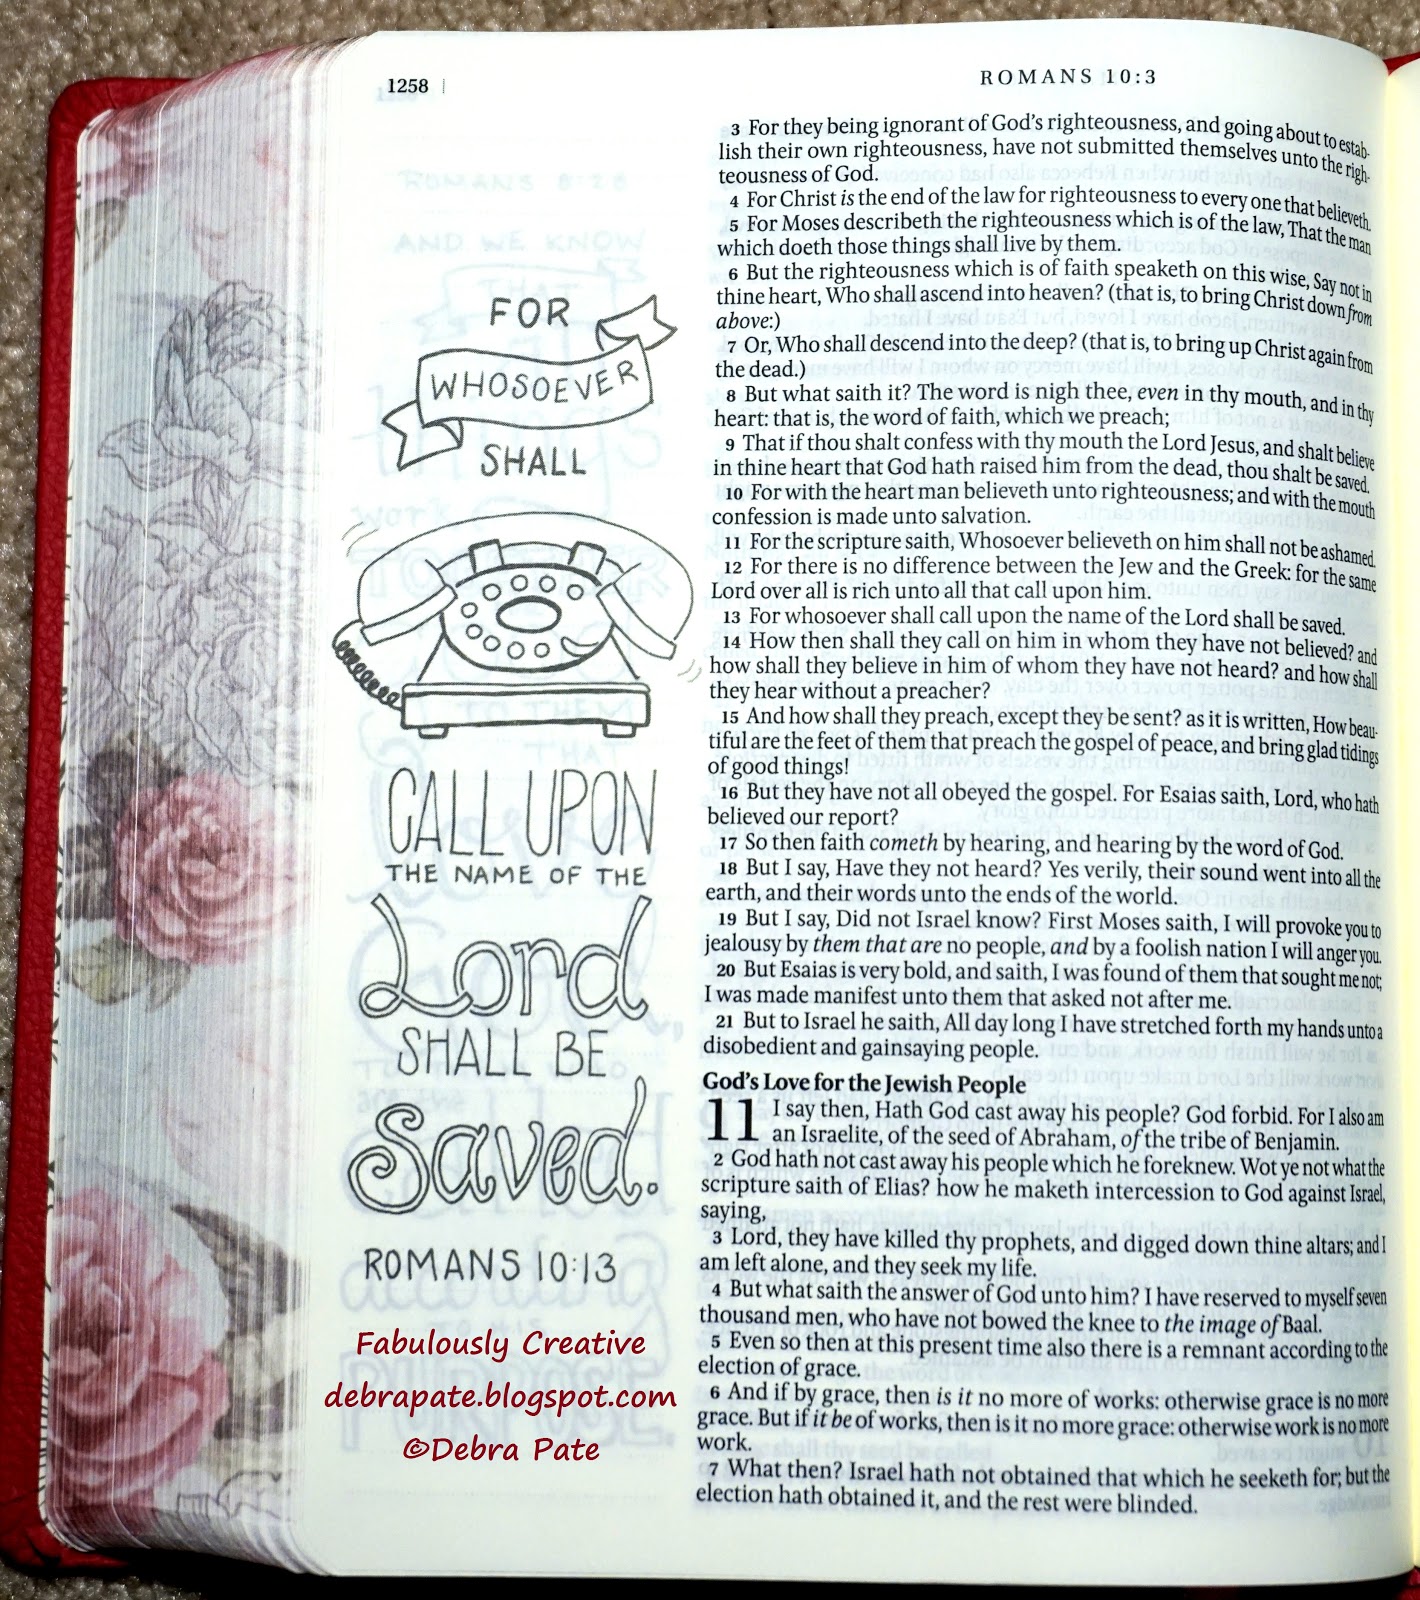 1258
ROMANS 10:3
FOR
WHOSOEVER
SHALL
CALL UPON
THE NAME OF THE
Lord
SHALL BE
Saved.
ROMANS 10:13
Fabulously Creative
debrapate.blogspot.com
©Debra Pate
3 For they being ignorant of God's righteousness, and going about to estab-
lish their own righteousness, have not submitted themselves unto the righ-
teousness of God.
4 For Christ is the end of the law for righteousness to every one that believeth.
5 For Moses describeth the righteousness which is of the law, That the man
which doeth those things shall live by them.
6 But the righteousness which is of faith speaketh on this wise, Say not in
thine heart, Who shall ascend into heaven? (that is, to bring Christ down from
above:)
7 Or, Who shall descend into the deep? (that is, to bring up Christ again from
the dead.)
8 But what saith it? The word is nigh thee, even in thy mouth, and in thy
heart: that is, the word of faith, which we preach;
9 That if thou shalt confess with thy mouth the Lord Jesus, and shalt believe
in thine heart that God hath raised him from the dead, thou shalt be saved.
10 For with the heart man believeth unto righteousness; and with the mouth
confession is made unto salvation.
11 For the scripture saith, Whosoever believeth on him shall not be ashamed.
12 For there is no difference between the Jew and the Greek: for the same
Lord over all is rich unto all that call upon him.
13 For whosoever shall call upon the name of the Lord shall be saved.
14 How then shall they call on him in whom they have not believed? and
how shall they believe in him of whom they have not heard? and how shall
they hear without a preacher?
15 And how shall they preach, except they be sent? as it is written, How beau-
tiful are the feet of them that preach the gospel of peace, and bring glad tidings
of good things!
16 But they have not all obeyed the gospel. For Esaias saith, Lord, who hath
believed our report?
17 So then faith cometh by hearing, and hearing by the word of God.
18 But I say, Have they not heard? Yes verily, their sound went into all the
earth, and their words unto the ends of the world.
19 But I say, Did not Israel know? First Moses saith, I will provoke you to
jealousy by them that are no people, and by a foolish nation I will anger you.
20 But Esaias is very bold, and saith, I was found of them that sought me not;
I was made manifest unto them that asked not after me.
21 But to Israel he saith, All day long I have stretched forth my hands unto a
disobedient and gainsaying people.
God's Love for the Jewish People
11 I say then, Hath God cast away his people? God forbid. For I also am
an Israelite, of the seed of Abraham, of the tribe of Benjamin.
2 God hath not cast away his people which he foreknew. Wot ye not what the
scripture saith of Elias? how he maketh intercession to God against Israel,
saying,
3 Lord, they have killed thy prophets, and digged down thine altars; and I
am left alone, and they seek my life.
4 But what saith the answer of God unto him? I have reserved to myself seven
thousand men, who have not bowed the knee to the image of Baal.
5 Even so then at this present time also there is a remnant according to the
election of grace.
6 And if by grace, then is it no more of works: otherwise grace is no more
grace. But if it be of works, then is it no more grace: otherwise work is no more
work.
7 What then? Israel hath not obtained that which he seeketh for; but the
election hath obtained it, and the rest were blinded.